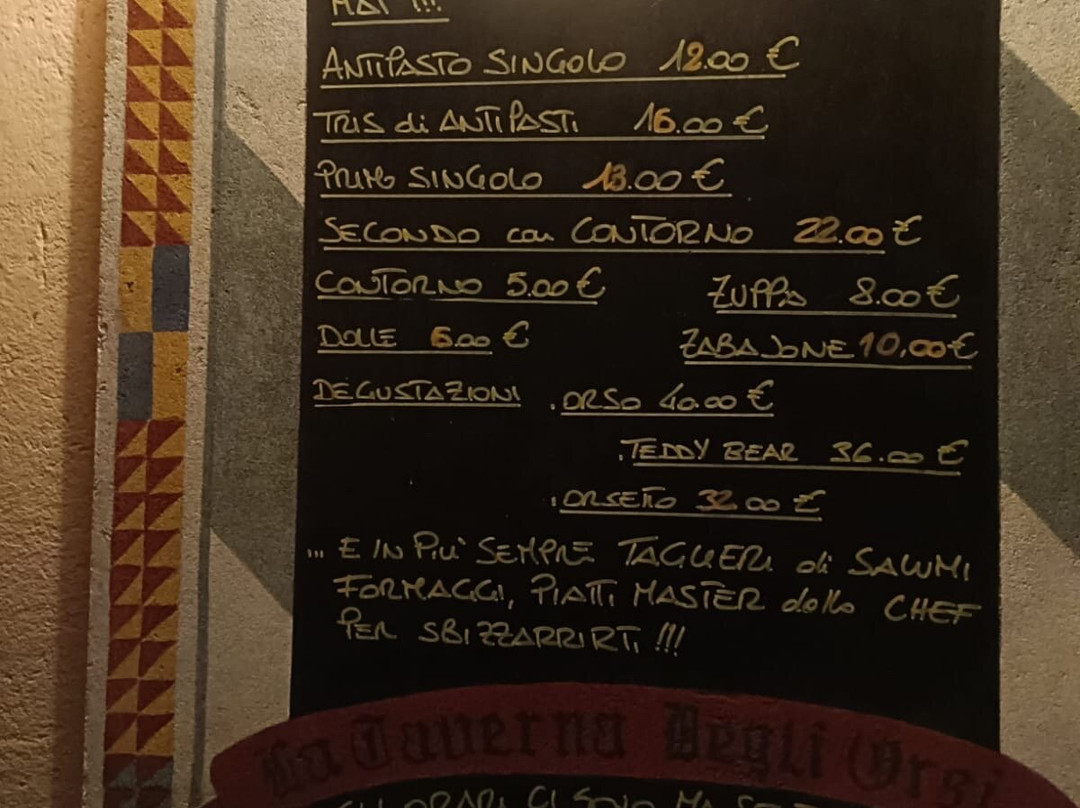 MAI !!!
ANTIPASTO SINGOLO 12.00 €
TRIS di ANTIPASTI 16.00 €
PRIMO SINGOLO 13.00 €
SECONDO con CONTORNO 22.00 €
CONTORNO 5.00 € ZUPPA 8.00 €
DOLCE 6.00 € ZABAJONE 10,00 €
DEGUSTAZIONI .ORSO 40.00 €
.TEDDY BEAR 36.00 €
.ORSETTO 32.00 €
... E IN PIU' SEMPRE TAGLIERI di SALUMI
FORMAGGI, PIATTI MASTER dello CHEF
PER SBIZZARRIRTI !!!
La Taverna Degli Orsi
GLI ORARI CI SONO MA